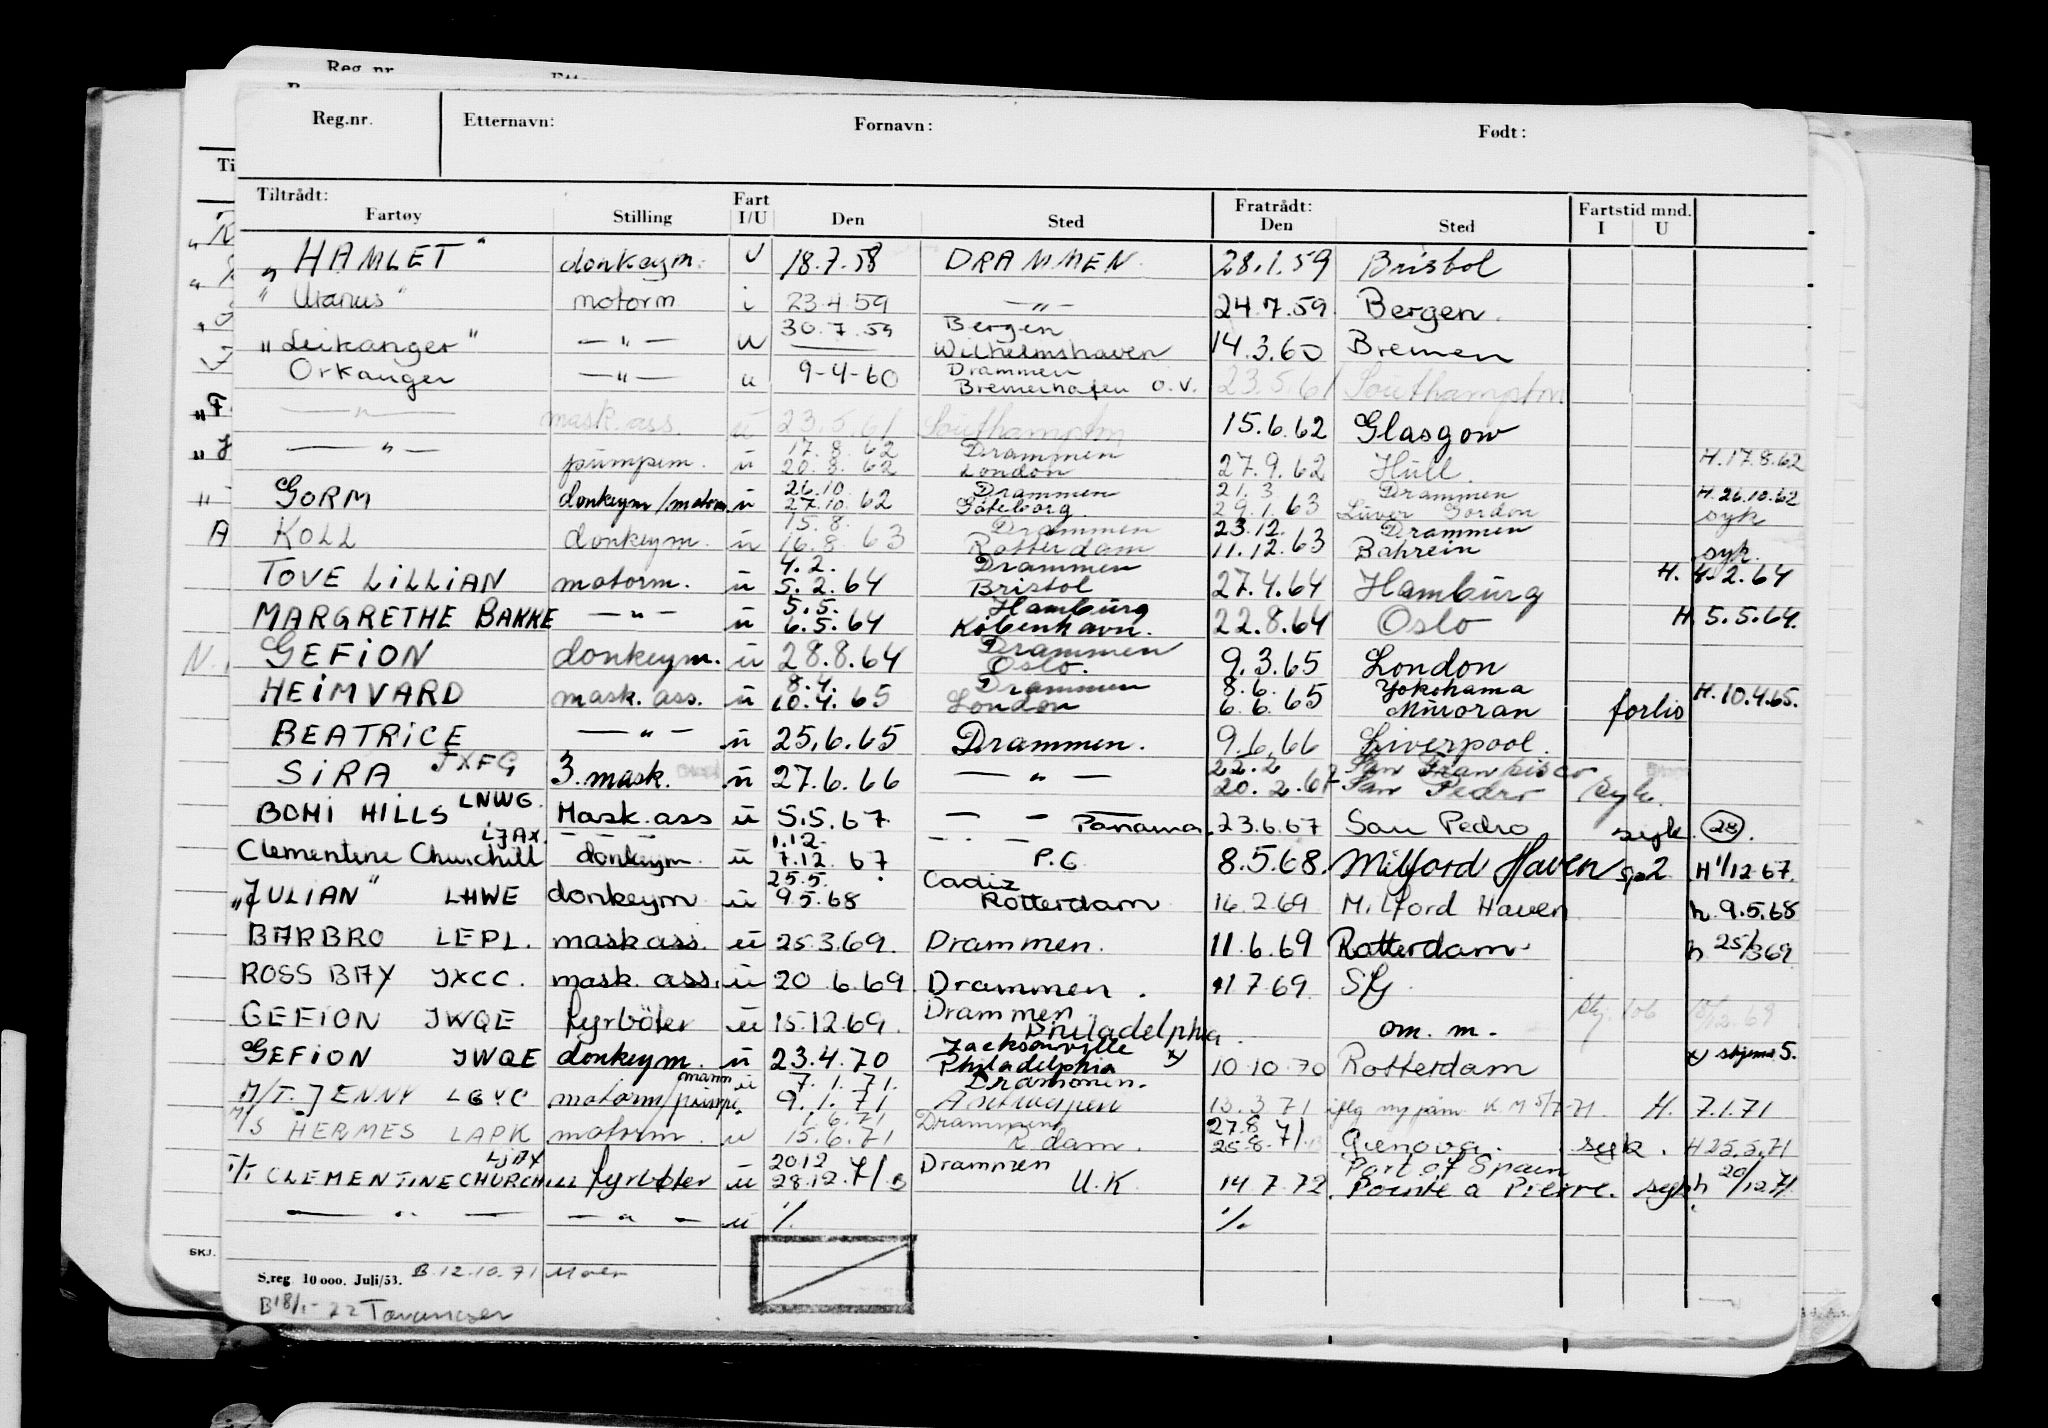 Reg. nr.
Reg.nr. Etternavn: Fornavn: Født:
Tiltrådt: Fart Fratrådt: Fartstid mnd.
Fartøy Stilling I/U Den Sted Den Sted I U
„HAMLET" donkeym. u 18.7.58 DRAMMEN 28.1.59 Bristol
"Uranus" motorm i 23.4.59 —„— 24.7.59 Bergen
30.7.59 Bergen
„Leikanger" —„— u Wilhelmshaven 14.3.60 Bremen
Orkanger —„— u 9-4-60 Drammen
Bremerhafen O.V. 23.5.61 Southampton
—„— mask.ass. u 23.5.61 Southampton 15.6.62 Glasgow
—„— pumpem. u 17.8.62 Drammen H.17.8.62
20.8.62 London 27.9.62 Hull
GORM donkeym/motorm u 26.10 Drammen 21.3 Drammen H.26.10.62
27.10.62 Göteborg 29.1.63 syk
KOLL donkeym. u 15.8. Drammen 23.12. Drammen
16.8.63 Rotterdam 11.12.63 Bahrein syk.
TOVE LILLIAN motorm. u 4.2. Drammen H. 4-2.64
5.2.64 Bristol 27.4.64 Hamburg
MARGRETHE BAKKE —„— u 5.5. Hamburg H. 5.5.64.
6.5.64 København. 22.8.64 Oslo
GEFION donkeym. u 28.8.64 Drammen
Oslo. 9.3.65 London
HEIMVARD mask.ass. u 8.4. Drammen 8.6. Yokohama H.10.4.65.
10.4.65 London 6.6.65 Muroran forlis
BEATRICE —„— u 25.6.65 Drammen. 9.6.66 Liverpool.
SIRA JXFG 3.mask. u 27.6.66 —„— 22.2 San Fransisco
20.2.67 San Pedro syk.
BOMI HILLS LNWG. Mask.ass u 5.5.67 — — Panama. 23.6.67 San Pedro syk. (28).
Clementine Churchill LJAX. donkeym. u 1.12. — —
7.12.67 P.G 8.5.68. Milford Haven H 1/12.67.
„JULIAN" LHWE donkeym u 25.5. Cadiz
9.5.68 Rotterdam 16.2.69 Milford Haven h. 9.5.68
BARBRO LEPL. mask ass. u 25.3.69. Drammen. 11.6.69 Rotterdam. h 25/3 69
ROSS BAY JXCC. mask. ass. u 20.6.69. Drammen. 11 7 69.
GEFION JWQE fyrbøter u 15.12.69. Drammen
Philadelphia. om. m.
GEFION JWQE donkeym. u 23.4.70 Jacksonville
Philadelphia x) 10.10.70 Rotterdam x) skjema 5.
M/T. JENNY LGYC motorm/pumpemann u 7.1.71. Drammen.
9.1.71 Antwerpen 13.3.71 H. 7.1.71
M/S HERMES LAPK motorm. u 1.6.71 Drammen 27.8
15.6.71 R.dam. 25.8.71 Genova. syk. H 25.5.71
T/T CLEMENTINE CHURCHILL LJAX fyrbøter u 20.12 Drammen Port of Spain
28.12.71 U.K 14.7.72. Pointe a Pierre. syk h 20/12.71.
—„— —„— u %. %.
SKJ.
S.reg. 10 000. Juli/53. B.12.10.71
B 18/1-72